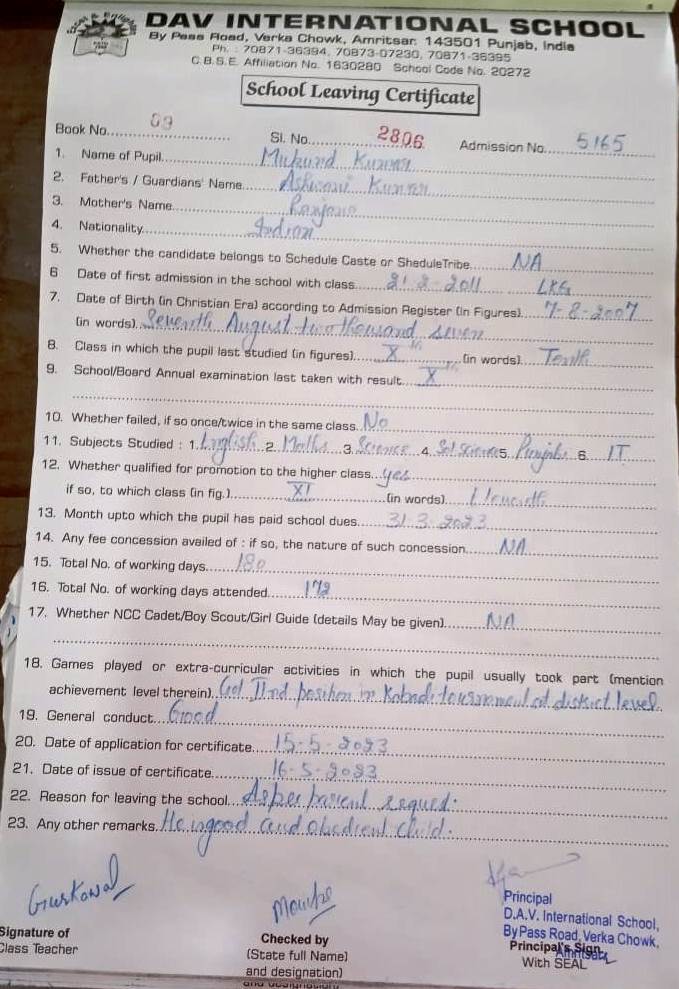 DAV INTERNATIONAL SCHOOL
By Pass Road, Verka Chowk, Amritsar. 143501 Punjab, India
Ph. : 70871-36394, 70873-07230, 70871-36395
C.B.S.E. Affiliation No. 1630280 School Code No. 20272
School Leaving Certificate
Book No. 09 Sl. No. 2806 Admission No. 5165
1. Name of Pupil Mukund Kumar
2. Father's / Guardians' Name Ashwani Kumar
3. Mother's Name Ranjana
4. Nationality Indian
5. Whether the candidate belongs to Schedule Caste or SheduleTribe NA
6 Date of first admission in the school with class 21-2-2011 LKG
7. Date of Birth (in Christian Era) according to Admission Register (in Figures) 7-8-2007
(in words) Seventh August two thousand seven
8. Class in which the pupil last studied (in figures) X th (in words) Tenth
9. School/Board Annual examination last taken with result X th
10. Whether failed, if so once/twice in the same class No
11. Subjects Studied : 1. English 2. Maths 3. Science 4. Sst Science 5. Punjabi 6. IT
12. Whether qualified for promotion to the higher class yes
if so, to which class (in fig.) XI (in words) Eleventh
13. Month upto which the pupil has paid school dues 31-3-2023
14. Any fee concession availed of : if so, the nature of such concession NA
15. Total No. of working days 180
16. Total No. of working days attended 172
17. Whether NCC Cadet/Boy Scout/Girl Guide (details May be given) NA
18. Games played or extra-curricular activities in which the pupil usually took part (mention
achievement level therein) Got IInd position in Kabadi tournament at district level.
19. General conduct Good
20. Date of application for certificate 15-5-2023
21. Date of issue of certificate 16-5-2023
22. Reason for leaving the school As per parent request.
23. Any other remarks He is good and obedient child.
Gurkawal
Principal
D.A.V. International School,
By Pass Road, Verka Chowk,
Amritsar
Signature of
Class Teacher
Checked by
(State full Name)
and designation)
Principal's Sign.
With SEAL